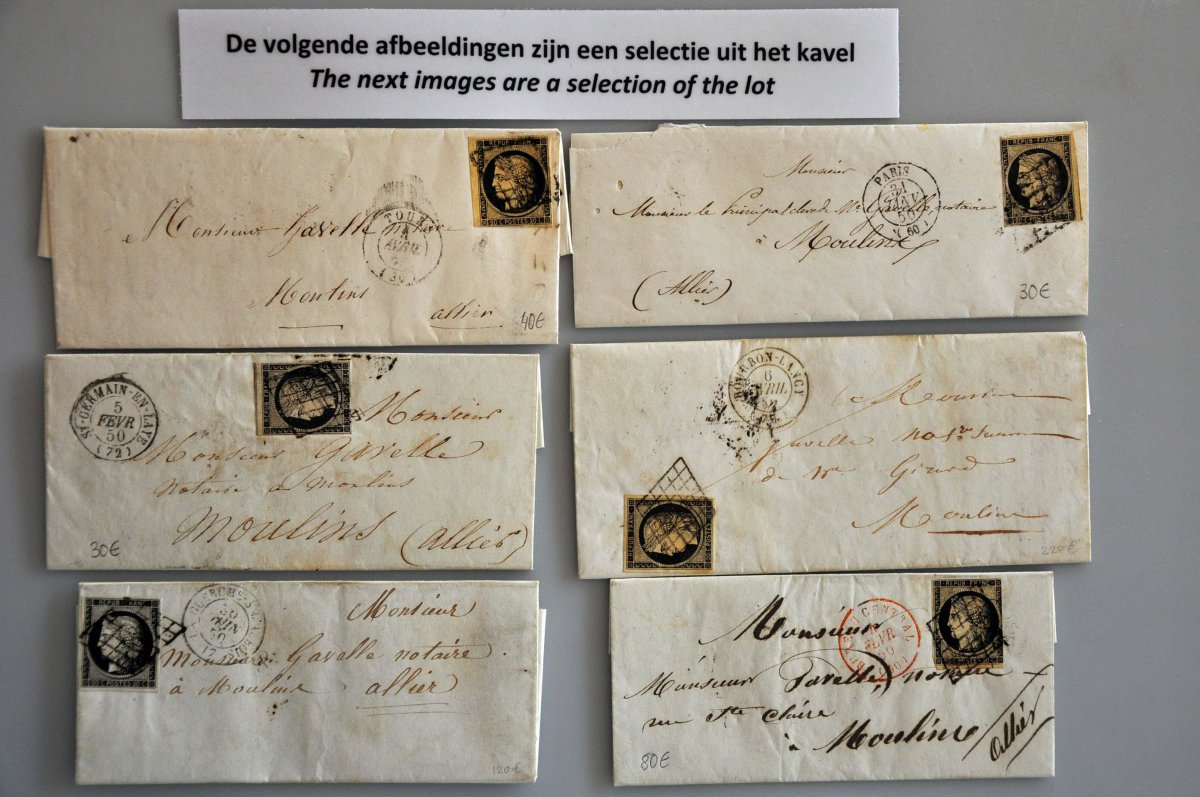 De volgende afbeeldingen zijn een selectie uit het kavel
The next images are a selection of the lot
REPUB FRANC
20 C POSTES 20 C
TOUL
Monsieur Gavelle notaire
Moulins
allier
40€
REPUB FRANC
20 C POSTES 20 C
PARIS
31
JANV
50
(60)
Monsieur
Monsieur le Principal clerc de Mr Gavelle notaire
à Moulins
(Allier)
30€
ST-GERMAIN-EN-LAYE
5
FEVR
50
(72)
Monsieur
Monsieur Gavelle
notaire a moulins
Moulins (allier)
30€
BOURBON-LANCY
6
AVRIL
Gavelle
de Mr Girard
Moulins
REPUB FRANC
20 C POSTES 20 C
220€
REPUB FRANC
20 C POSTES 20 C
30
JUIN
50
Monsieur
Monsieur Gavelle notaire
à Moulins allier
120€
REPUB FRANC
20 C POSTES 20 C
CENTRAL
FEVR
50
Monsieur
Monsieur Gavelle, notaire
rue Ste Claire
à Moulins
Allier
80€